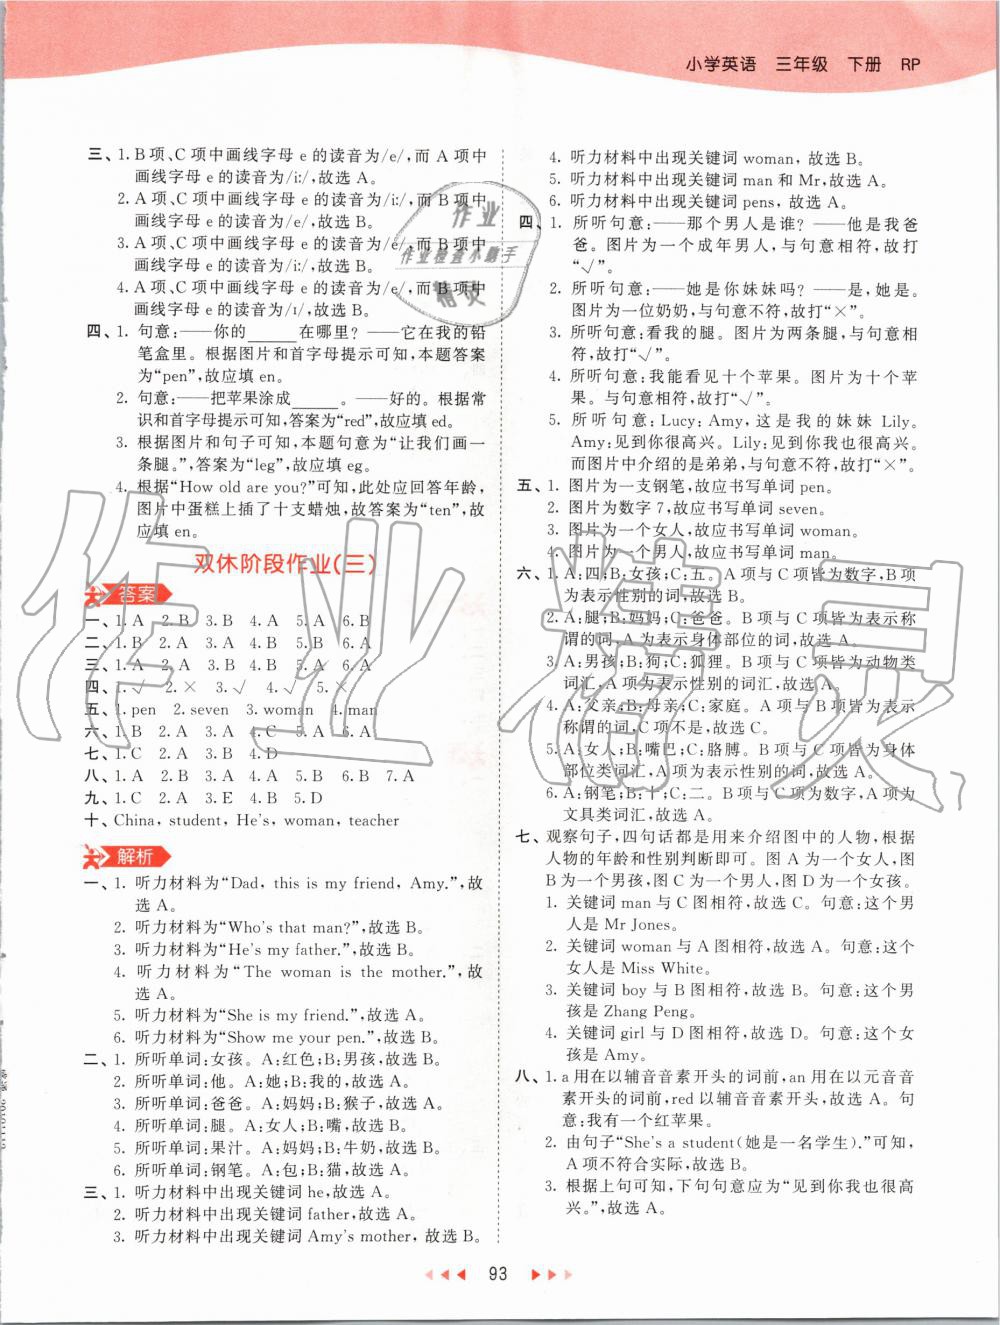 小学英语 三年级 下册 RP
三、1. B 项、C 项中画线字母 e 的读音为/e/,而 A 项中
画线字母 e 的读音为/i:/,故选 A。
2. A 项、C 项中画线字母 e 的读音为/i:/,而 B 项中
画线字母 e 的读音为/e/,故选 B。
3. A 项、C 项中画线字母 e 的读音为/e/,而 B 项中
画线字母 e 的读音为/i:/,故选 B。
4. A 项、C 项中画线字母 e 的读音为/e/,而 B 项中
画线字母 e 的读音为/ɪ/,故选 B。
四、1. 句意:——你的______在哪里? ——它在我的铅
笔盒里。根据图片和首字母提示可知,本题答案
为“pen”,故应填 en。
2. 句意:——把苹果涂成______。——好的。根据常
识和首字母提示可知,答案为“red”,故应填 ed。
3. 根据图片和句子可知,本题句意为“让我们画一
条腿。”,答案为“leg”,故应填 eg。
4. 根据“How old are you?”可知,此处应回答年龄,
图片中蛋糕上插了十支蜡烛,故答案为“ten”,故
应填 en。
双休阶段作业(三)
答案
一、1. A 2. B 3. B 4. A 5. A 6. B
二、1. B 2. A 3. A 4. B 5. B 6. A
三、1. A 2. A 3. B 4. B 5. A 6. A
四、1. √ 2. × 3. √ 4. √ 5. ×
五、1. pen 2. seven 3. woman 4. man
六、1. B 2. A 3. A 4. C 5. A 6. A
七、1. C 2. A 3. B 4. D
八、1. A 2. B 3. A 4. A 5. B 6. B 7. A
九、1. C 2. A 3. E 4. B 5. D
十、China, student, He's, woman, teacher
解析
一、1. 听力材料为“Dad, this is my friend, Amy.”,故
选 A。
2. 听力材料为“Who's that man?”,故选 B。
3. 听力材料为“He's my father.”,故选 B。
4. 听力材料为“The woman is the mother.”,故
选 A。
5. 听力材料为“She is my friend.”,故选 A。
6. 听力材料为“Show me your pen.”,故选 B。
二、1. 所听单词:女孩。A:红色;B:男孩,故选 B。
2. 所听单词:他。A:她;B:我的,故选 A。
3. 所听单词:爸爸。A:妈妈;B:猴子,故选 A。
4. 所听单词:腿。A:女人;B:嘴,故选 B。
5. 所听单词:果汁。A:妈妈;B:牛奶,故选 B。
6. 所听单词:钢笔。A:包;B:猫,故选 A。
三、1. 听力材料中出现关键词 he,故选 A。
2. 听力材料中出现关键词 father,故选 A。
3. 听力材料中出现关键词 Amy's mother,故选 B。
4. 听力材料中出现关键词 woman,故选 B。
5. 听力材料中出现关键词 man 和 Mr,故选 A。
6. 听力材料中出现关键词 pens,故选 A。
四、1. 所听句意:——那个男人是谁? ——他是我爸
爸。图片为一个成年男人,与句意相符,故打
“√”。
2. 所听句意:——她是你妹妹吗? ——是,她是。
图片为一位奶奶,与句意不符,故打“×”。
3. 所听句意:看我的腿。图片为两条腿,与句意相
符,故打“√”。
4. 所听句意:我能看见十个苹果。图片为十个苹
果。与句意相符,故打“√”。
5. 所听句意:Lucy:Amy,这是我的妹妹 Lily。
Amy:见到你很高兴。Lily:见到你我也很高兴。
而图片中介绍的是弟弟,与句意不符,故打“×”。
五、1. 图片为一支钢笔,故应书写单词 pen。
2. 图片为数字 7,故应书写单词 seven。
3. 图片为一个女人,故应书写单词 woman。
4. 图片为一个男人,故应书写单词 man。
六、1. A:四;B:女孩;C:五。A 项与 C 项皆为数字,B 项
为表示性别的词,故选 B。
2. A:腿;B:妈妈;C:爸爸。B 项与 C 项皆为表示称
谓的词,A 为表示身体部位的词,故选 A。
3. A:男孩;B:狗;C:狐狸。B 项与 C 项皆为动物类
词汇,A 项为表示性别的词汇,故选 A。
4. A:父亲;B:母亲;C:家庭。A 项与 B 项皆为表示
称谓的词,C 项不是,故选 C。
5. A:女人;B:嘴巴;C:胳膊。B 项与 C 项皆为身体
部位类词汇,A 项为表示性别的词汇,故选 A。
6. A:钢笔;B:十;C:二。B 项与 C 项为数字,A 项为
文具类词汇,故选 A。
七、观察句子,四句话都是用来介绍图中的人物,根据
人物的年龄和性别判断即可。图 A 为一个女人,图
B 为一个男孩,图 C 为一个男人,图 D 为一个女孩。
1. 关键词 man 与 C 图相符,故选 C。句意:这个男
人是 Mr Jones。
2. 关键词 woman 与 A 图相符,故选 A。句意:这个
女人是 Miss White。
3. 关键词 boy 与 B 图相符,故选 B。句意:这个男
孩是 Zhang Peng。
4. 关键词 girl 与 D 图相符,故选 D。句意:这个女
孩是 Amy。
八、1. a 用在以辅音音素开头的词前,an 用在以元音音
素开头的词前,red 以辅音音素开头,故选 A。句
意:我有一个红苹果。
2. 由句子“She's a student(她是一名学生).”可知,
A 项不符合实际,故选 B。
3. 根据上句可知,下句句意应为“见到你我也很高
兴。”,故选 A。
93
作业
作业检查小助手
精灵
作业精灵